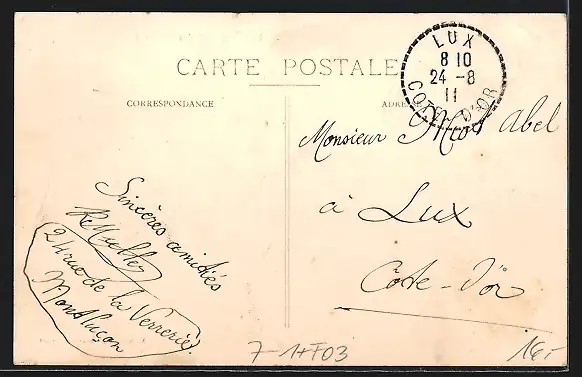 CARTE POSTALE
CORRESPONDANCE
ADRE
LUX
8 10
24 -8
11
COTE-D'OR
Monsieur Abel
à Lux
Côte-d'Or
Sincères amitiés
24 rue de la Verrerie
Montluçon
7-1
16-